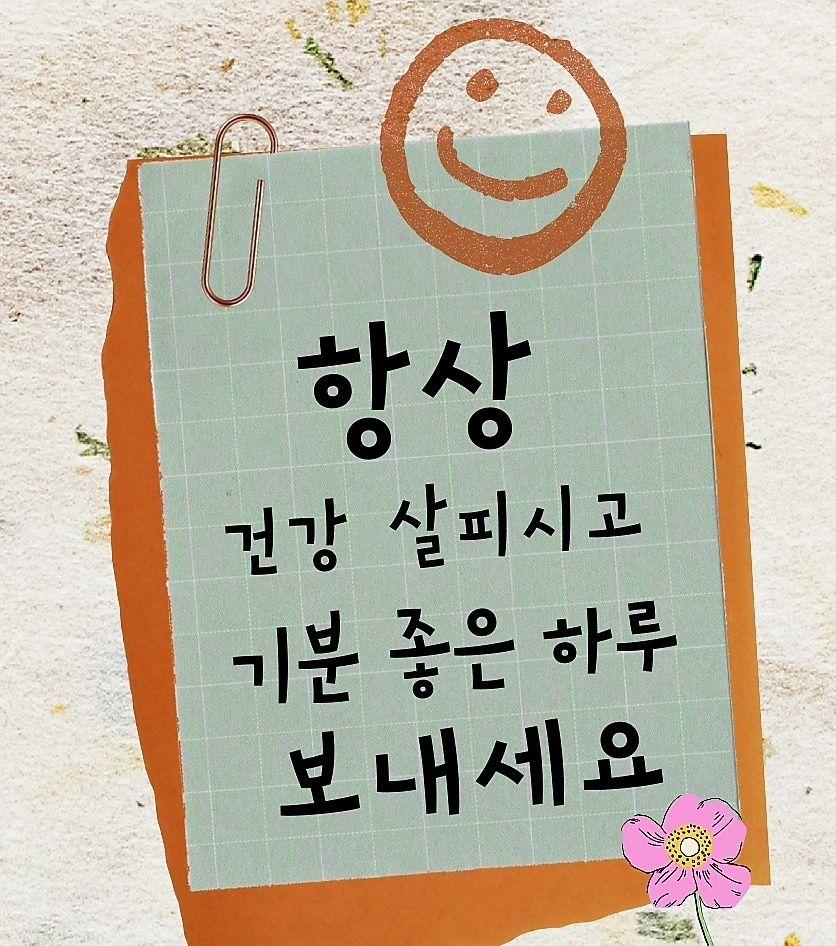 항상
건강 살피시고
기분 좋은 하루
보내세요